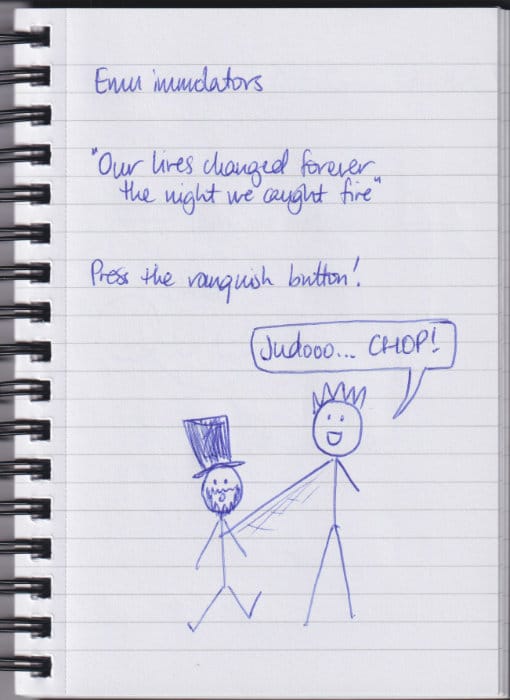 Emu
"Our lives changed forever
the night we caught fire"
Press the vanquish button!
Judooo... CHOP!